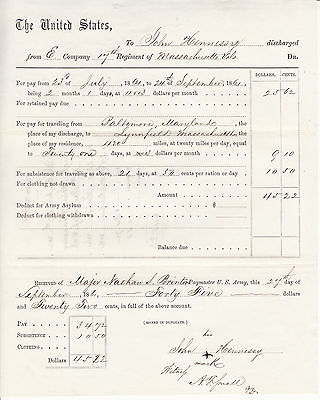 The United States,
To John Hennessy discharged
from E Company 17th Regiment of Massachusetts Vols Dr.
DOLLARS. CENTS.
For pay from 23d of July 1861, to 24th of September, 1861,
being 2 months 1 days, at dollars per month 25 62
For retained pay due
For pay for traveling from Baltimore, Maryland
place of discharge, to Lynnfield Massachusetts
place of residence, miles, at twenty miles per day, equal
to Twenty one days, at dollars per month 9 10
For subsistence for traveling as above, 21 days, at 50 cents per ration or day 10 50
For clothing not drawn
Amount 45 22
Deduct for Army Asylum $
Deduct for clothing withdrawn
Balance due
Received of Major Nathan S. Paymaster U. S. Army, this 27th of
September 1861, Forty Five dollars
and Twenty Two cents, in full of the above account.
Pay 34 72
Subsistence 10 50
Clothing
Dollars 45 22
(SIGNED IN DUPLICATE.)
his
John + Hennessy
mark
Witness
Small